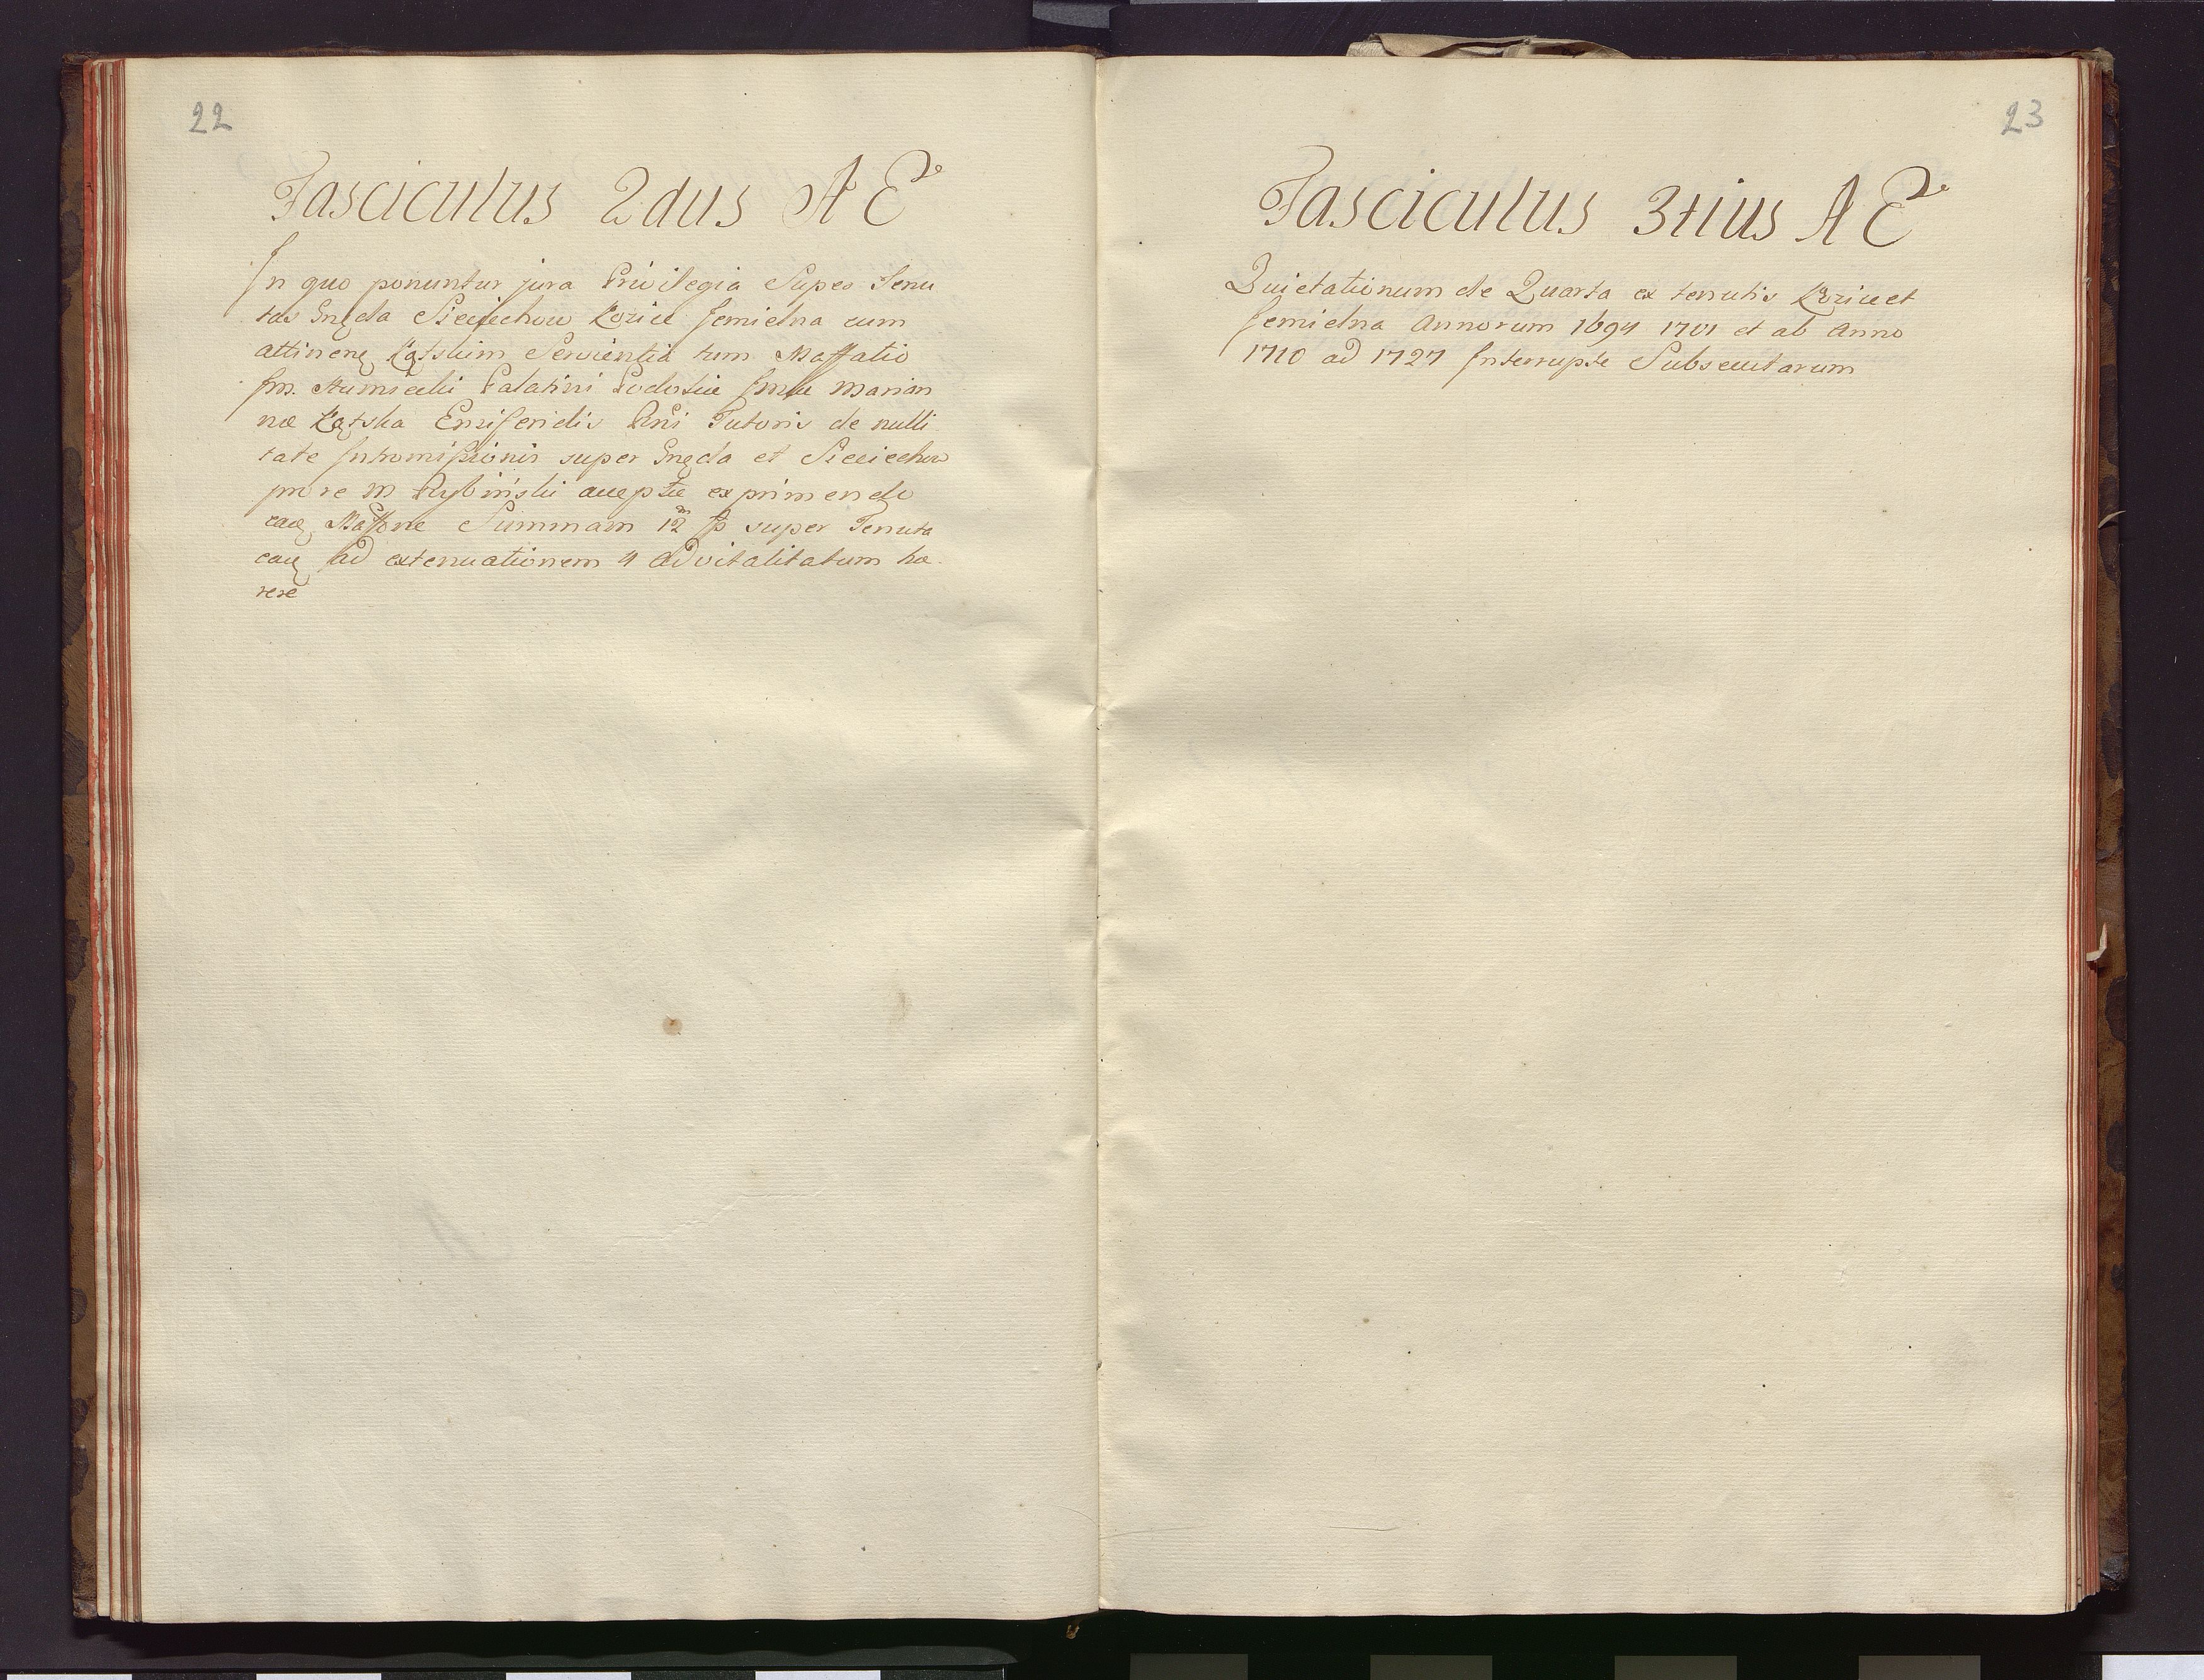 22
Fasciculus 2dus A E
In quo ponuntur jura Privilegia Super Tenu
tas Gnęda Sieciechow Łozice Jemielna cum
attinen Kątskim Servientia tum Maffatio
Jm. Humiecki Palatini Podoliæ Marian
næ Kątska Ensiferidis Rni Tutoris de nulli
tate Intromissionis super Gnęda et Sieciechow
pro re m Rybiński acceptæ exprimendo
eaq Maffone Summam 12 super Tenuta
eaq ad extenuationem 4 advitalitatum hæ
rere
23
Fasciculus 3tius A E
Quietationum de Quarta ex tenutis Łozice et
Jemielna Annorum 1694 1701 et ab Anno
1710 ad 1727 Interrupte Subsecutarum